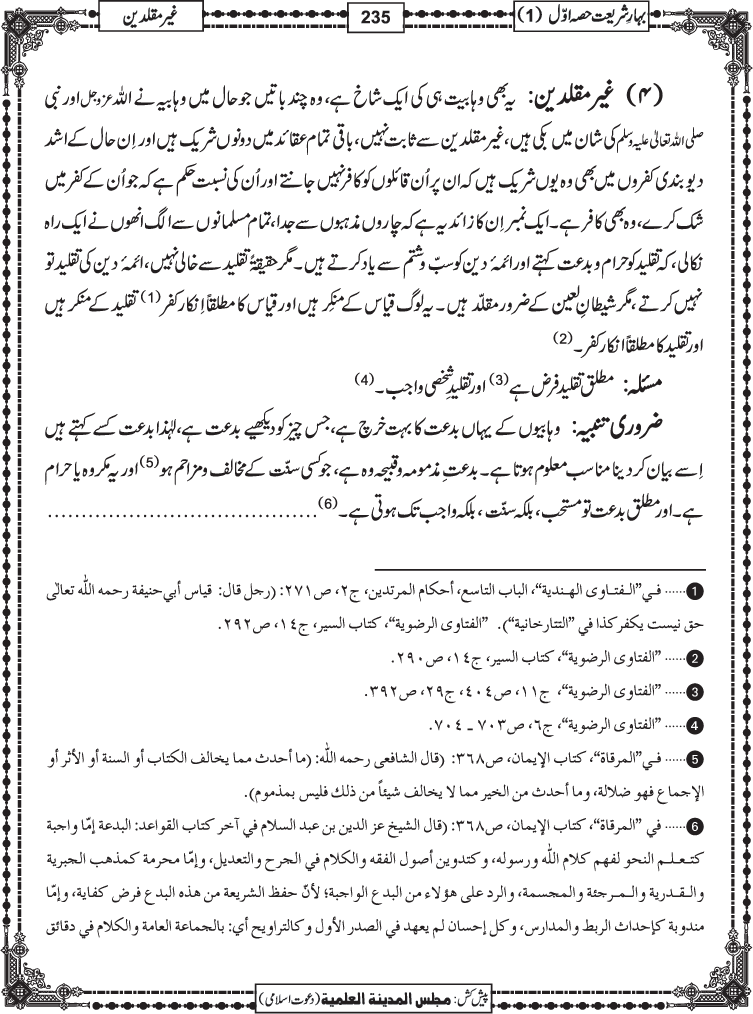 بہارِ شریعت حصہ اوّل (1)
235
غیر مقلدین
(۴) غیر مقلدین: یہ بھی وہابیت ہی کی ایک شاخ ہے، وہ چند باتیں جو حال میں وہابیہ نے اللہ عزوجل اور نبی
صلی اللہ تعالیٰ علیہ وسلم کی شان میں بکی ہیں، غیر مقلدین سے ثابت نہیں، باقی تمام عقائد میں دونوں شریک ہیں اور اِن حال کے اشد
دیوبندی کفروں میں بھی وہ یوں شریک ہیں کہ ان پر اُن قائلوں کو کافر نہیں جانتے اور اُن کی نسبت حکم ہے کہ جو اُن کے کفر میں
شک کرے، وہ بھی کافر ہے۔ ایک نمبر اِن کا زائد یہ ہے کہ چاروں مذہبوں سے جدا، تمام مسلمانوں سے الگ انھوں نے ایک راہ
نکالی، کہ تقلید کو حرام و بدعت کہتے اور ائمۂ دین کو سبّ و شتم سے یاد کرتے ہیں۔ مگر حقیقۃً تقلید سے خالی نہیں، ائمۂ دین کی تقلید تو
نہیں کرتے، مگر شیطانِ لعین کے ضرور مقلّد ہیں۔ یہ لوگ قیاس کے منکِر ہیں اور قیاس کا مطلقاً اِنکار کفر (1) تقلید کے منکر ہیں
اور تقلید کا مطلقاً انکار کفر۔ (2)
مسئلہ: مطلق تقلید فرض ہے (3) اور تقلیدِ شخصی واجب۔ (4)
ضروری تنبیہ: وہابیوں کے یہاں بدعت کا بہت خرچ ہے، جس چیز کو دیکھیے بدعت ہے، لہٰذا بدعت کسے کہتے ہیں
اِسے بیان کر دینا مناسب معلوم ہوتا ہے۔ بدعتِ مذمومہ و قبیحہ وہ ہے، جو کسی سنّت کے مخالف و مزاحم ہو (5) اور یہ مکروہ یا حرام
ہے۔ اور مطلق بدعت تو مستحب، بلکہ سنّت، بلکہ واجب تک ہوتی ہے۔ (6) ......................................
1 ...... في ”الفتاوی الهندية“، الباب التاسع، أحكام المرتدين، ج٢، ص٢٧١: (رجل قال: قياس أبي حنيفة رحمه اللّٰه تعالٰی
حق نيست يكفر كذا في ”التتارخانية“). ”الفتاوی الرضوية“، كتاب السير، ج١٤، ص٢٩٢.
2 ...... ”الفتاوی الرضوية“، كتاب السير، ج١٤، ص٢٩٠.
3 ...... ”الفتاوی الرضوية“، ج١١، ص٤٠٤، ج٢٩، ص٣٩٢.
4 ...... ”الفتاوی الرضوية“، ج٦، ص٧٠٣ ـ ٧٠٤.
5 ...... في ”المرقاة“، كتاب الإيمان، ص٣٦٨: (قال الشافعي رحمه اللّٰه: (ما أحدث مما يخالف الكتاب أو السنة أو الأثر أو
الإجماع فهو ضلالة، وما أحدث من الخير مما لا يخالف شيئاً من ذلك فليس بمذموم).
6 ...... في ”المرقاة“، كتاب الإيمان، ص٣٦٨: (قال الشيخ عز الدين بن عبد السلام في آخر كتاب القواعد: البدعة إمّا واجبة
كتعلم النحو لفهم كلام اللّٰه ورسوله، وكتدوين أصول الفقه والكلام في الجرح والتعديل، وإمّا محرمة كمذهب الجبرية
والقدرية والمرجئة والمجسمة، والرد على هؤلاء من البدع الواجبة؛ لأنّ حفظ الشريعة من هذه البدع فرض كفاية، وإمّا
مندوبة كإحداث الربط والمدارس، وكل إحسان لم يعهد في الصدر الأول وكالتراويح أي: بالجماعة العامة والكلام في دقائق
پیش کش: مجلس المدينة العلمية (دعوتِ اسلامی)